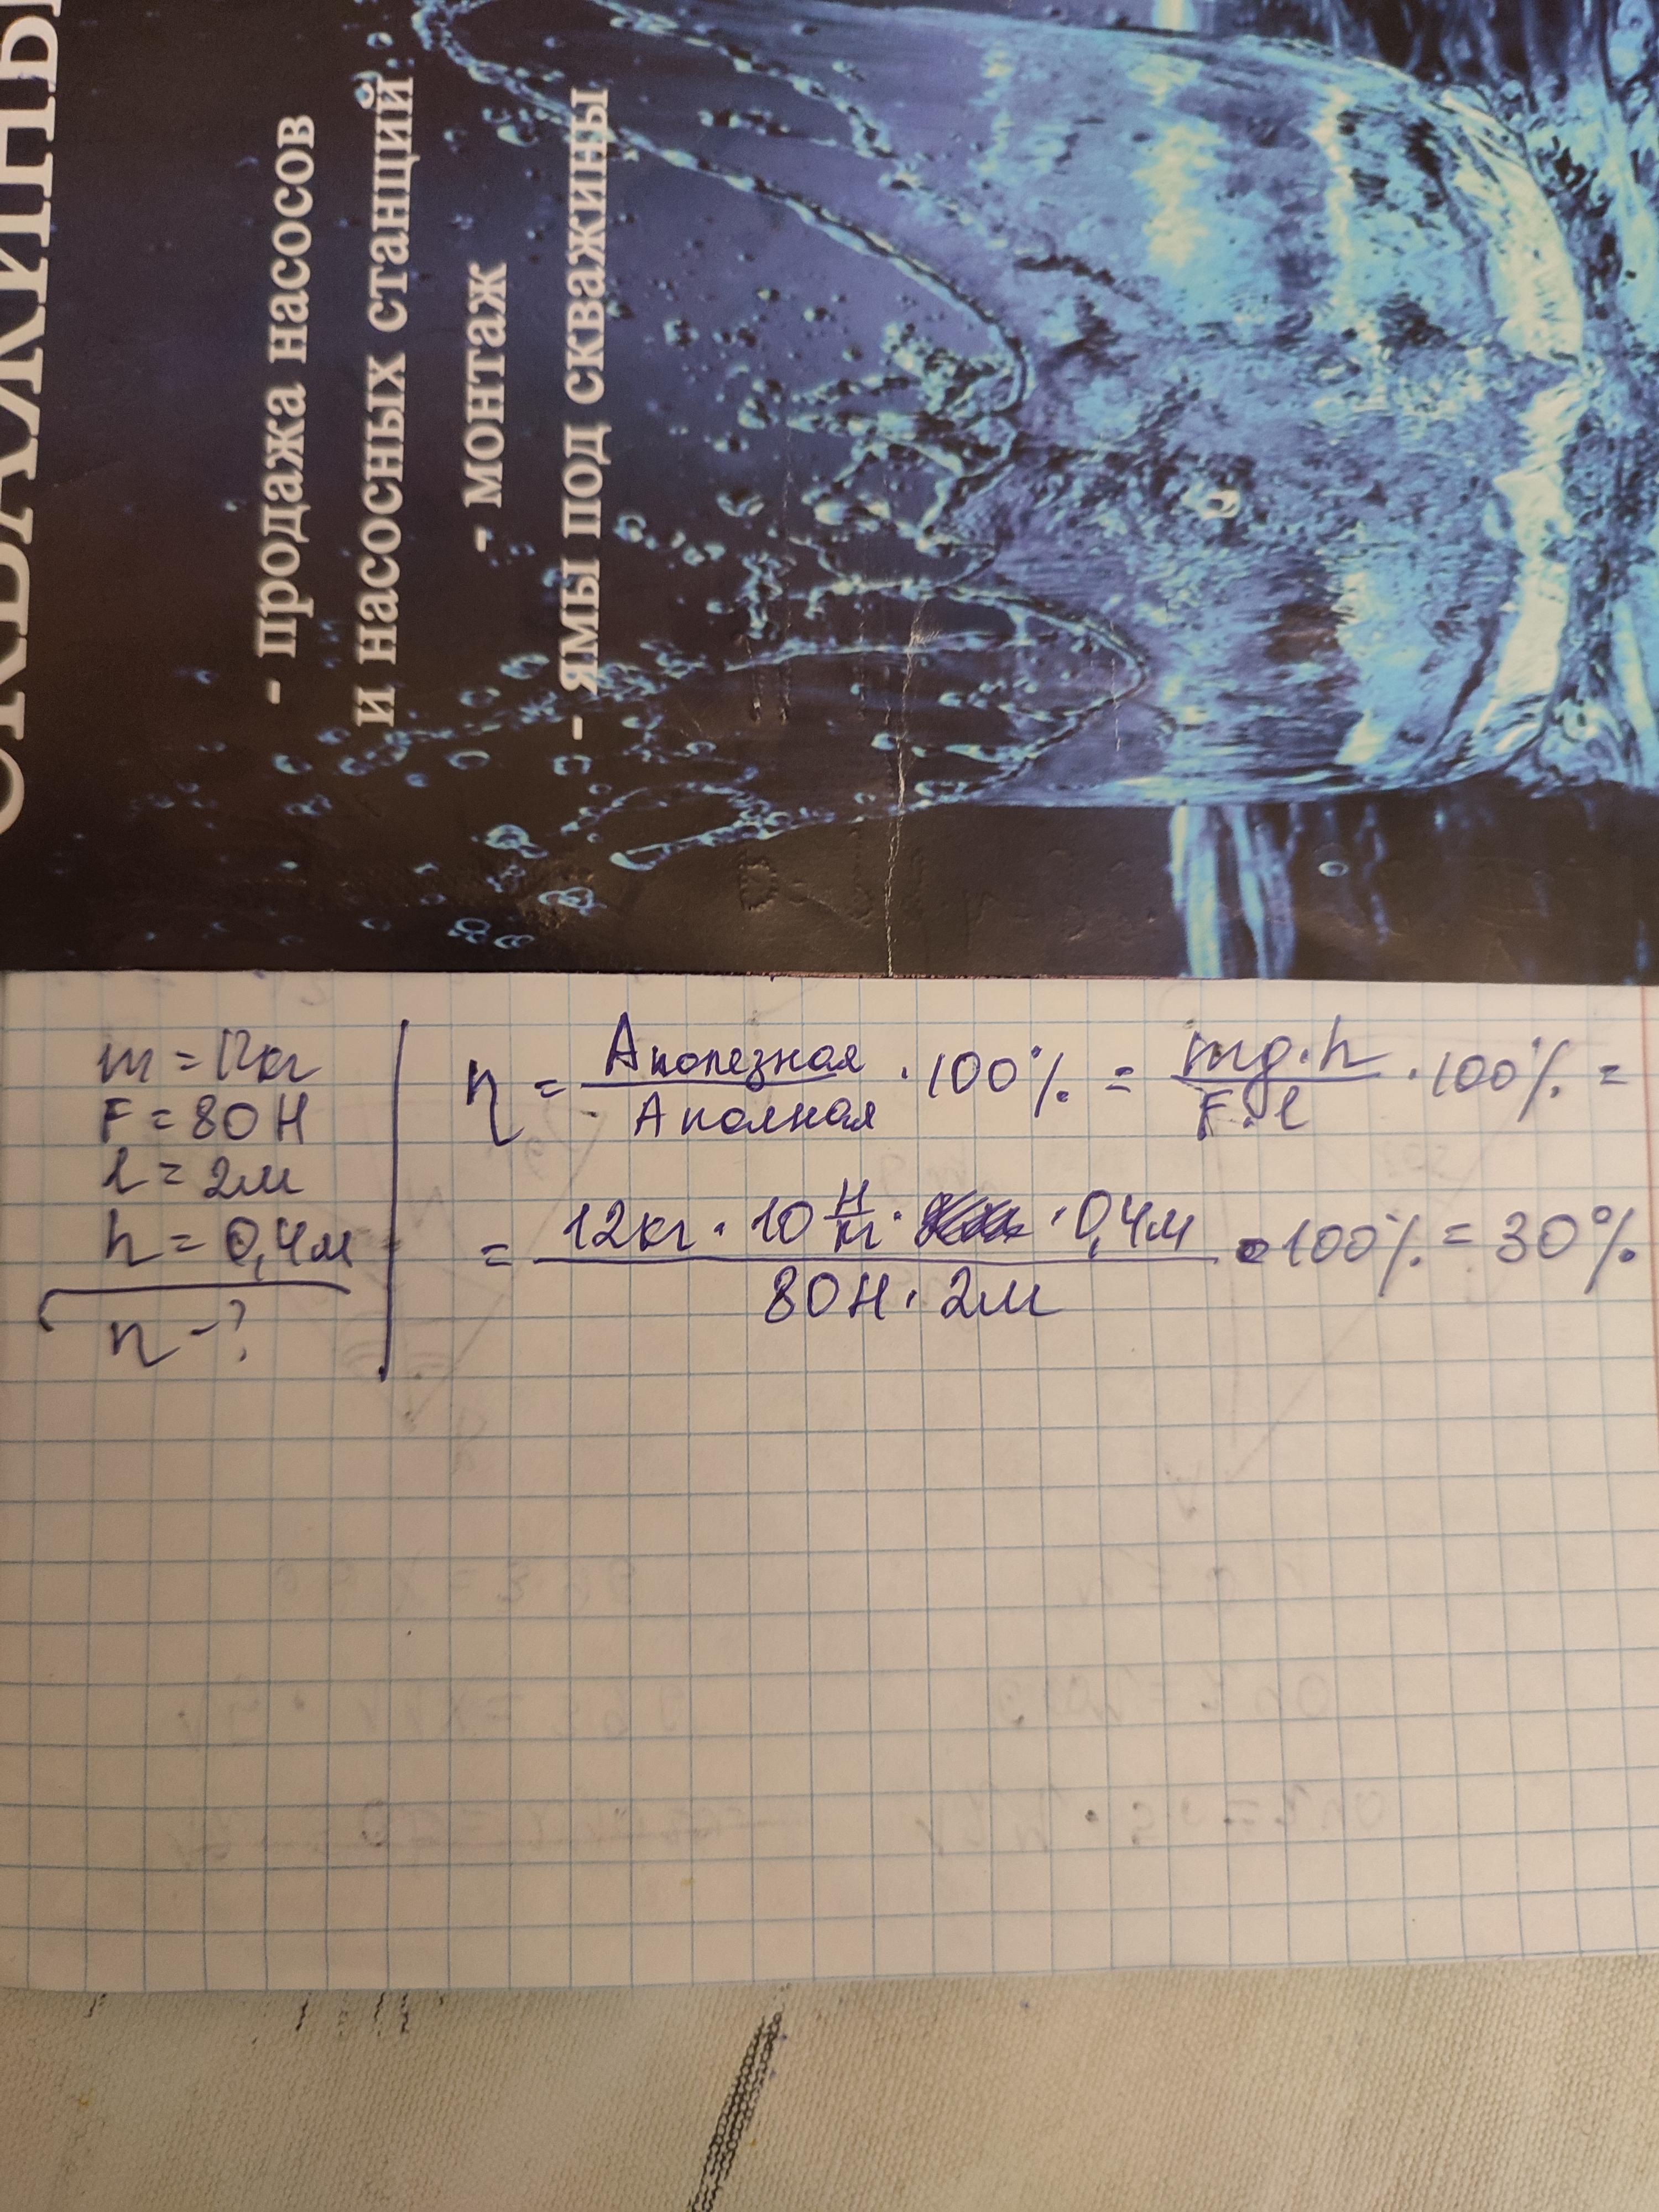 СКВАЖИНЫ
- продажа насосов
и насосных станций
- монтаж
- ямы под скважины
m = 12кг
F = 80Н
l = 2м
h = 0,4м
η - ?
η = Aполезная / Aполная · 100% = mg·h / F·l · 100% =
= 12кг · 10 Н/кг · · 0,4м / 80Н · 2м · 100% = 30%